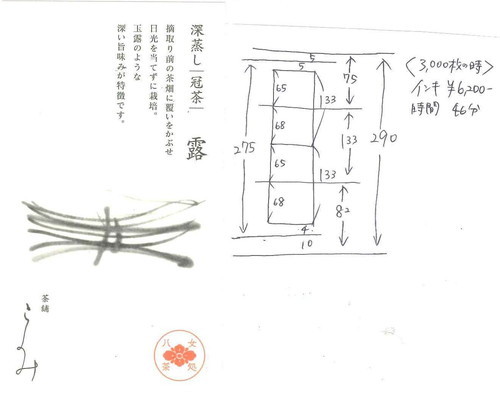 深蒸し 冠茶 露
摘取り前の茶畑に覆いをかぶせ
日光を当てずに栽培。
玉露のような
深い旨味みが特徴です。
茶舗
八女
茶処
5
5
75
65
133
68
275
133
290
65
133
68
82
4
10
〈3,000枚の時〉
インキ ¥6,200-
時間 46分